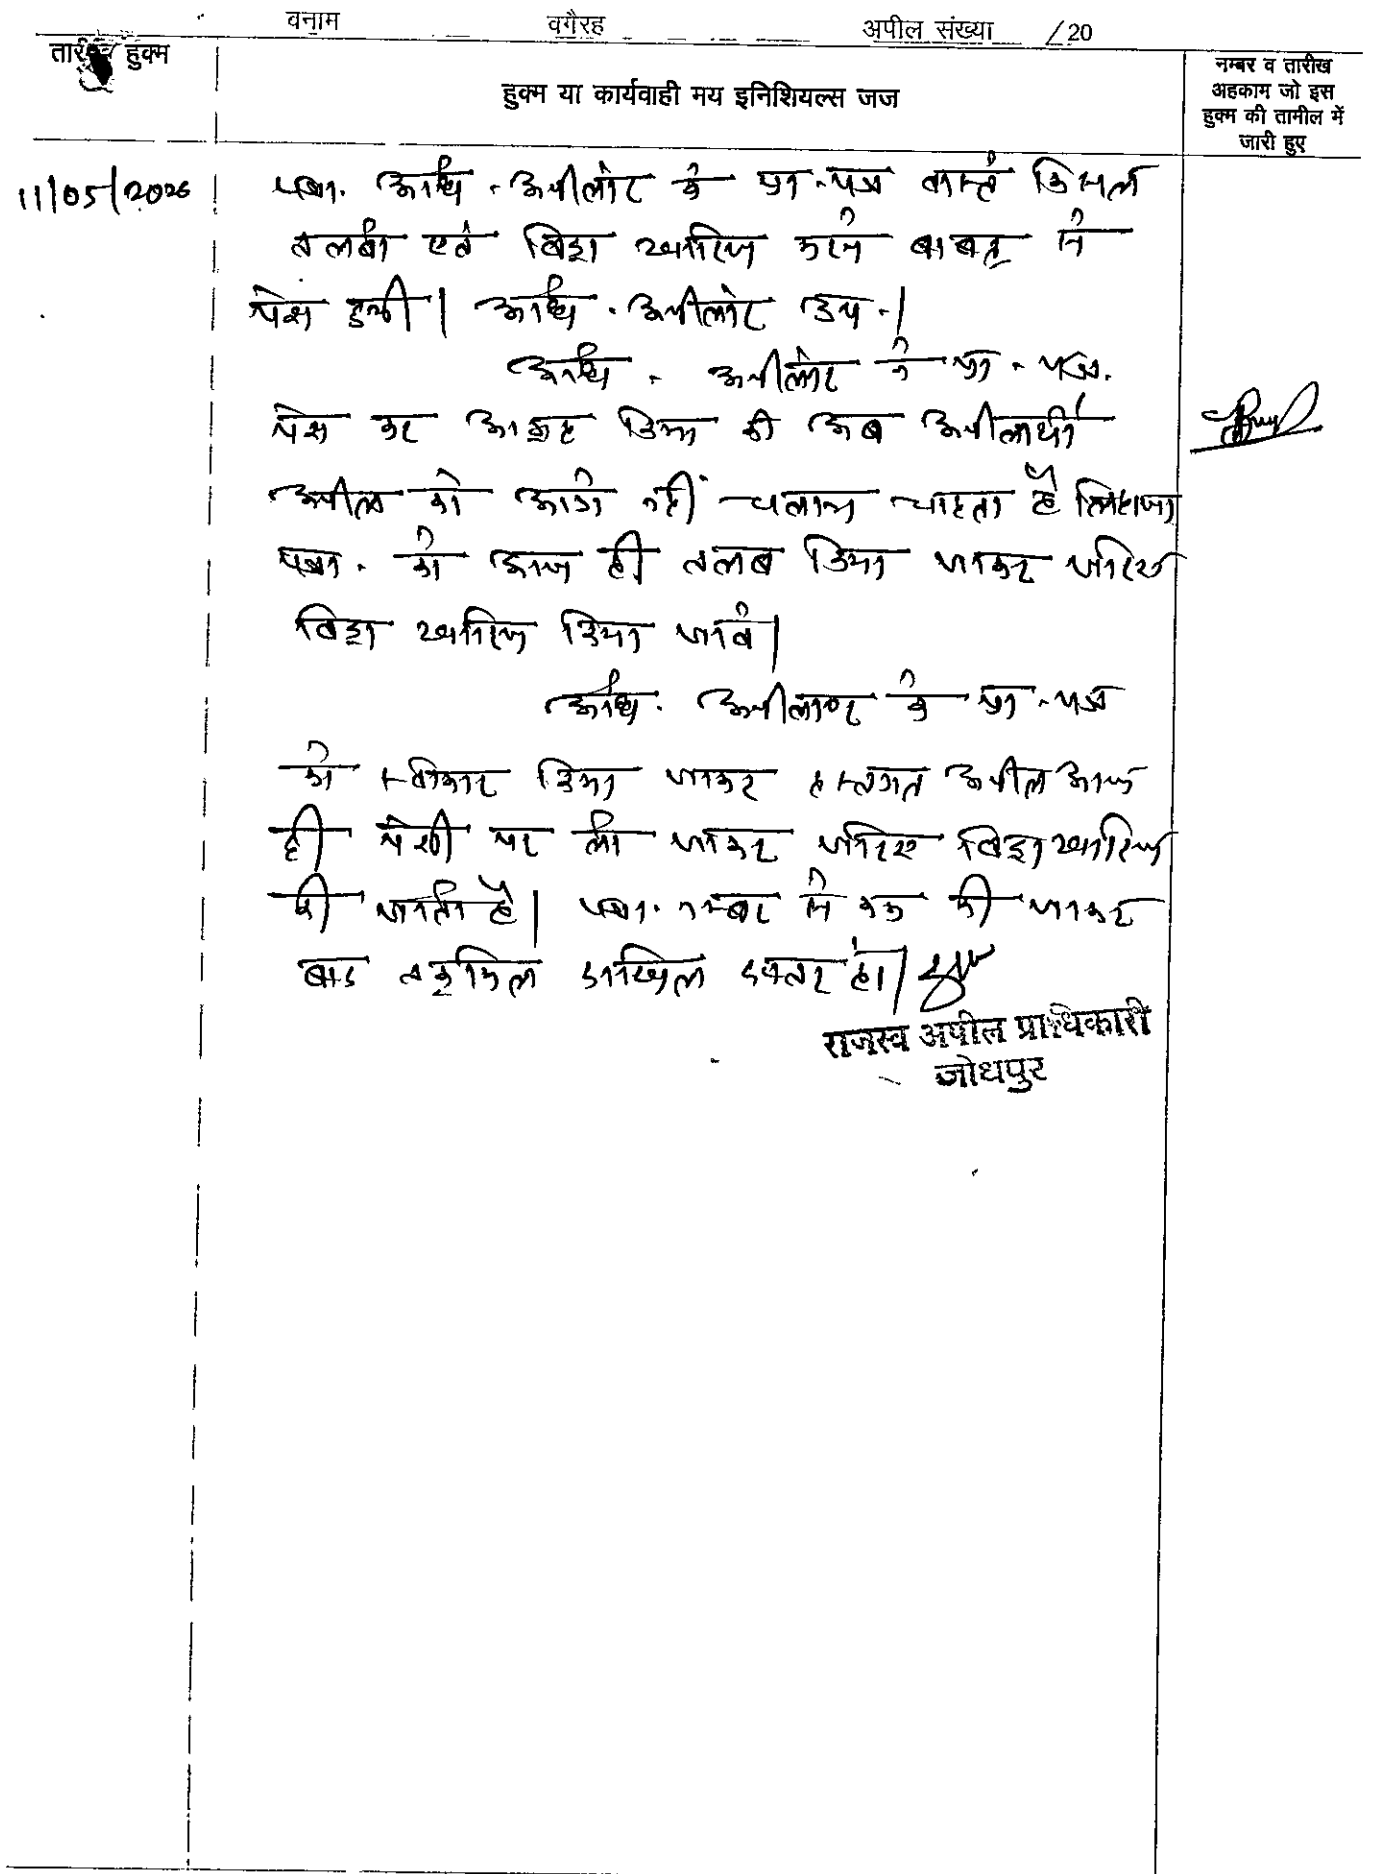 वनाम वगैरह अपील संख्या /20
तारीख हुक्म
हुक्म या कार्यवाही मय इनिशियल्स जज
नम्बर व तारीख
अहकाम जो इस
हुक्म की तामील में
जारी हुए
11/05/2026 पत्रा. अधि. अपीलांट के प्रा.पत्र वास्ते मिसल
तलबी एवं विड्रा खारिज करने बाबत् में
पेश हुयी। अधि. अपीलांट उप.।
अधि. अपीलांट ने प्रा.पत्र.
पेश कर आग्रह किया की अब अपीलार्थी
अपील को आगे नहीं चलाना चाहता है लिहाजा
पत्रा. को आज ही तलब किया जाकर जरिये
विड्रा खारिज किया जावे।
अधि. अपीलाण्ट के प्रा.पत्र
को स्वीकार किया जाकर हस्तगत अपील आज
ही पेशी पर ली जाकर जरिए विड्रा खारिज
की जाती है। पत्रा. नम्बर से कम की जाकर
बाद तकमिल दाखिल दफ्तर हो।
राजस्व अपील प्राधिकारी
जोधपुर